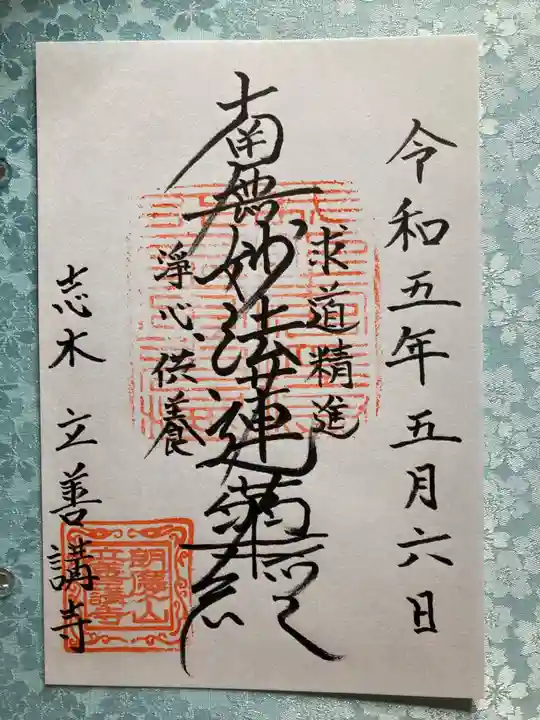 令和五年五月六日
求道精進
南無妙法蓮華経
浄心供養
志木立善講寺
明慶山
立善講寺